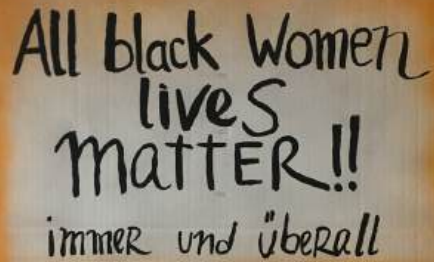 All black Women
liveS
MaTTER!!
immeR und übeRall